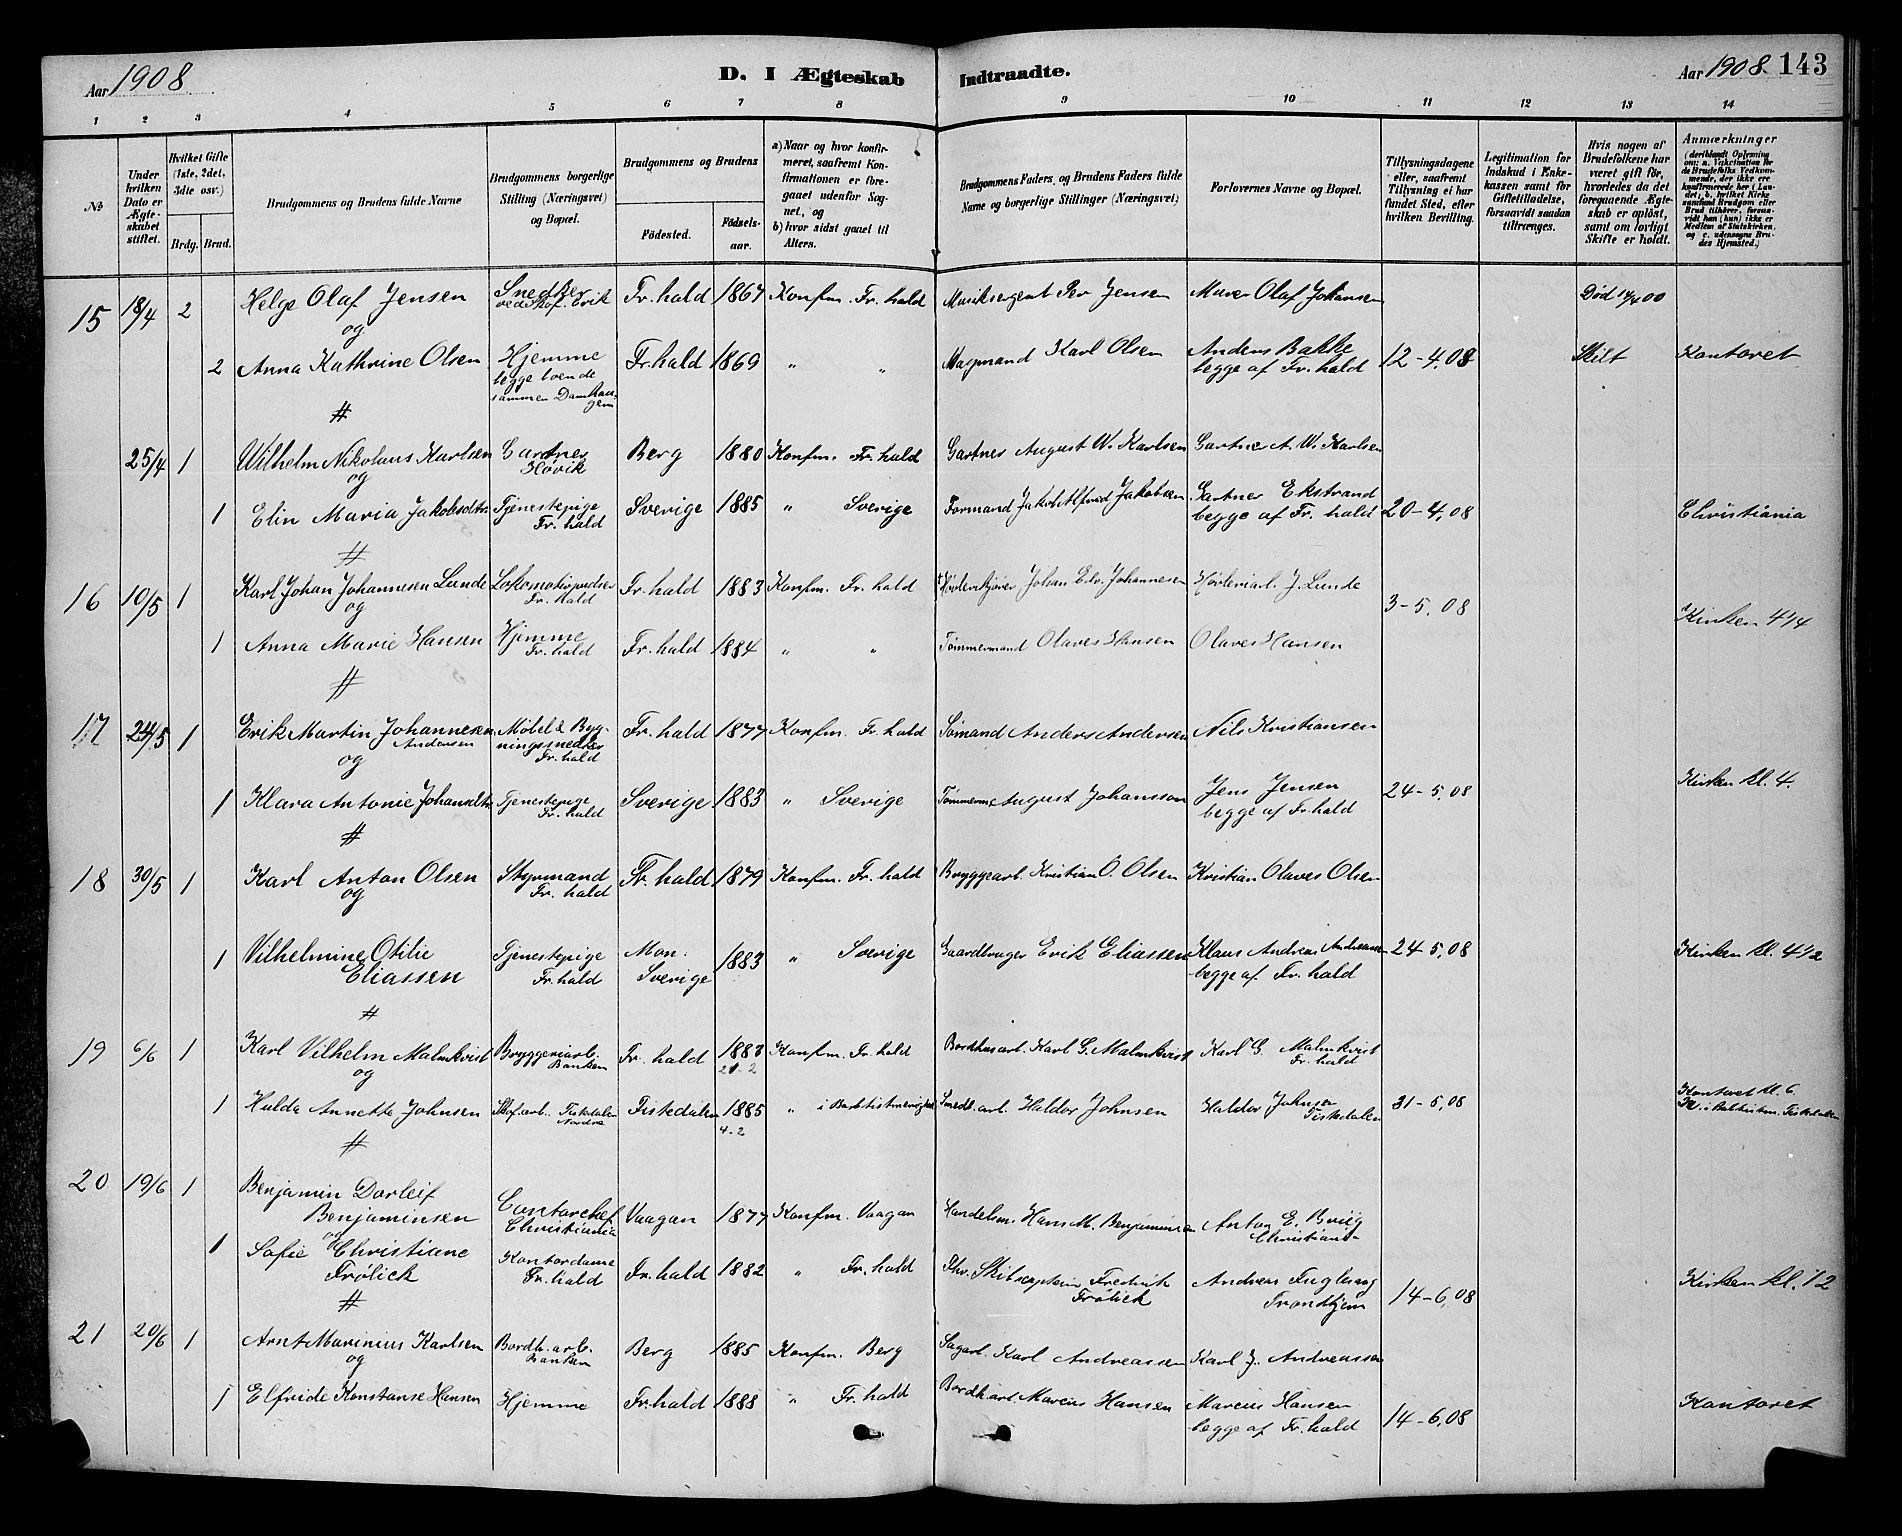 Aar 1908 D. I Ægteskab Indtraadte. Aar 1908. 143
1 2 3 4 5 6 7 8 9 10 11 12 13 14
No
Under hvilken Dato er Ægteskabet stiftet.
Hvilket Gifte (1ste, 2det, 3die osv.)
Brdg. Brud.
Brudgommens og Brudens fulde Navne
Brudgommens borgerlige Stilling (Næringsvei) og Bopæl.
Brudgommens og Brudens
Fødested. Fødselsaar.
a) Naar og hvor konfirmeret, saafremt Konfirmationen er foregaaet udenfor Sognet, og
b) hvor sidst gaaet til Alters.
Brudgommens Faders, og Brudens Faders fulde Navne og borgerlige Stillinger (Næringsvei)
Forlovernes Navne og Bopæl.
Tillysningsdagene eller, saafremt Tillysning ei har fundet Sted, efter hvilken Bevilling.
Legitimation for Indskud i Enkekassen samt for Giftetilladelse, forsaavidt saadan tiltrænges.
Hvis nogen af Brudefolkene har været gift før, hvorledes da det foregaaende Ægteskab er opløst, samt om lovligt Skifte er holdt.
Anmærkninger
(deriblandt Oplysning om: a. Vakcination for de Brudefolks Vedkommende, der ikke ere konfirmerede her i Landet, b. hvilket Kirkesamfund Brudgom eller Brud tilhører, forsavidt han (hun) ikke er Medlem af Statskirken, og c. udensogns Brudes Hjemsted.)
15 18/4 2 Helge Olaf Jensen Snedker ved Skof. Ørvik Fr. hald 1867 Konfm. Fr. hald Musiksergent Per Jensen Murer Olaf Johansen Død 14/4 00
og
2 Anna Kathrine Olsen Hjemme begge boende sammen Damhaugen Fr. hald 1869 " " Magmand Karl Olsen Anders Bakke begge af Fr. hald 12-4,08 Skilt Kontoret
#
25/4 1 Wilhelm Nikolaus Karlsen Gartner Høvik Berg 1880 Konfm. Fr. hald Gartner August W. Karlsen Gartner A. W. Karlsen
og
1 Elin Maria Jakobsdtr. Tjenestepige Fr. hald Sverige 1885 " Sverige Formand Jakob Alfred Jakobsen Gartner Ekstrand begge af Fr. hald 20-4,08 Christiania
#
16 10/5 1 Karl Johan Johannesen Lunde Lokomotivpudser Fr. hald Fr. hald 1883 Konfm. Fr. hald Johan Edv. Johannesen Høvleriarb. J. Lunde
og 3-5,08
1 Anna Marie Hansen Hjemme Fr. hald Fr. hald 1884 " " Tømmermand Olaves Hansen Olaves Hansen Kirken 4 1/4
#
17 24/5 1 Erik Martin Johannesen Andersen Møbel & Bygningssnedker Fr. hald Fr. hald 1877 Konfm. Fr. hald Sømand Anders Andersen Nils Kristiansen
og
1 Klara Antonie Johansdtr. Tjenestepige Fr. hald Sverige 1883 " Sverige Tømmerm. August Johansson Jens Jensen begge af Fr. hald 24-5,08 Kirken kl. 4.
#
18 30/5 1 Karl Anton Olsen Styrmand Fr. hald Fr. hald 1879 Konfm. Fr. hald Bryggearb. Kristian O. Olsen Kristian Olaves Olsen
og
1 Vilhelmine Otilie Eliassen Tjenestepige Fr. hald Mon. Sverige 1883 " Sverige Gaardbruger Erik Eliassen Klaus Andreas Andreassen begge af Fr. hald 24-5,08 Kirken kl. 4 1/2
#
19 6/6 1 Karl Vilhelm Malmkvist Bryggeriarb. Banken Fr. hald 1883 21-2 Konfm. Fr. hald Bordhusarb. Karl G. Malmkvist Karl G. Malmkvist Fr. hald
og
1 Hulda Annette Johnsen Skof.arb. Tistedalen Nordre Tistedalen 1885 4-2 " i Smedearb. Haldor Johnsen Haldor Johnsen Tistedalen 31-5,08 Kontoret kl. 6 Tistedalen
#
20 19/6 1 Benjamin Dorleif Benjaminsen Contorchef Christiania Vaagan 1877 Konfm. Vaagan Handelsm. Hans M. Benjaminsen Anton E. Bruig Christiania
og
1 Sofie Christiane Frølich Kontordame Fr. hald Fr. hald 1882 " Fr. hald Fhv. Skibscaptein Fredrik Frølich Andreas Fuglesang Trondhjem 14-6,08 Kirken kl. 12
#
21 20/6 1 Arnt Marinius Karlsen Bordh. arb. Banken Berg 1885 Konfm. Berg Sagarb. Karl Andreassen Karl J. Andreassen
og
1 Elfride Konstanse Hansen Hjemme Fr. hald 1888 " Fr. hald Bordh. arb. Marcus Hansen Marcus Hansen begge af Fr. hald 14-6,08 Kontoret